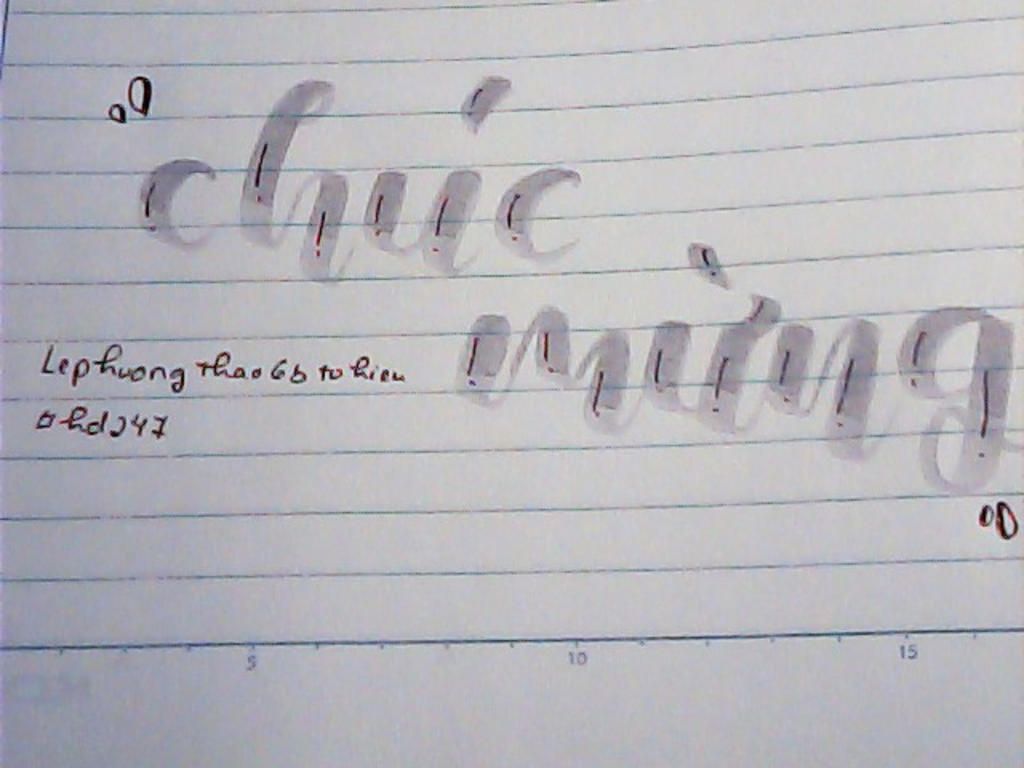 chúc
mừng
Lephuong thao 6b to hieu
hd247
5 10 15